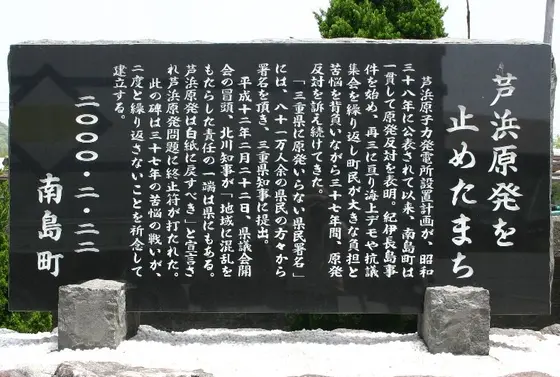 芦浜原発を
止めたまち
芦浜原子力発電所設置計画が、昭和
三十八年に公表されて以来、南島町は
一貫して原発反対を表明。紀伊長島事
件を始め、再三に亘り海上デモや抗議
集会を繰り返し町民が大きな負担と
苦悩を背負いながら三十七年間、原発
反対を訴え続けてきた。
「三重県に原発いらない県民署名」
には、八十一万人余の県民の方々から
署名を頂き、三重県知事に提出。
平成十二年二月二十二日、県議会開
会の冒頭、北川知事が「地域に混乱を
もたらした責任の一端は県にもある。
芦浜原発は白紙に戻すべき」と宣言さ
れ芦浜原発問題に終止符が打たれた。
此の碑は三十七年の苦悩の戦いが、
二度と繰り返さないことを祈念して
建立する。
二〇〇〇・二・二二
南島町